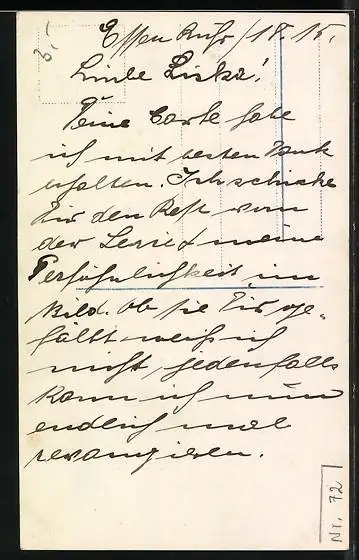 3,-
Essen Ruhr / 18. 15.
Liebe Liska!
Deine Carte habe
ich mit besten Dank
erhalten. Ich schicke
Dir den Rest von
der Serie meine
Persöhnlichkeit im
Bild. Ob sie Dir ge-
fällt weiß ich
nicht, jedenfalls
kann ich nun
endlich mal
revangieren.
Nr. 72